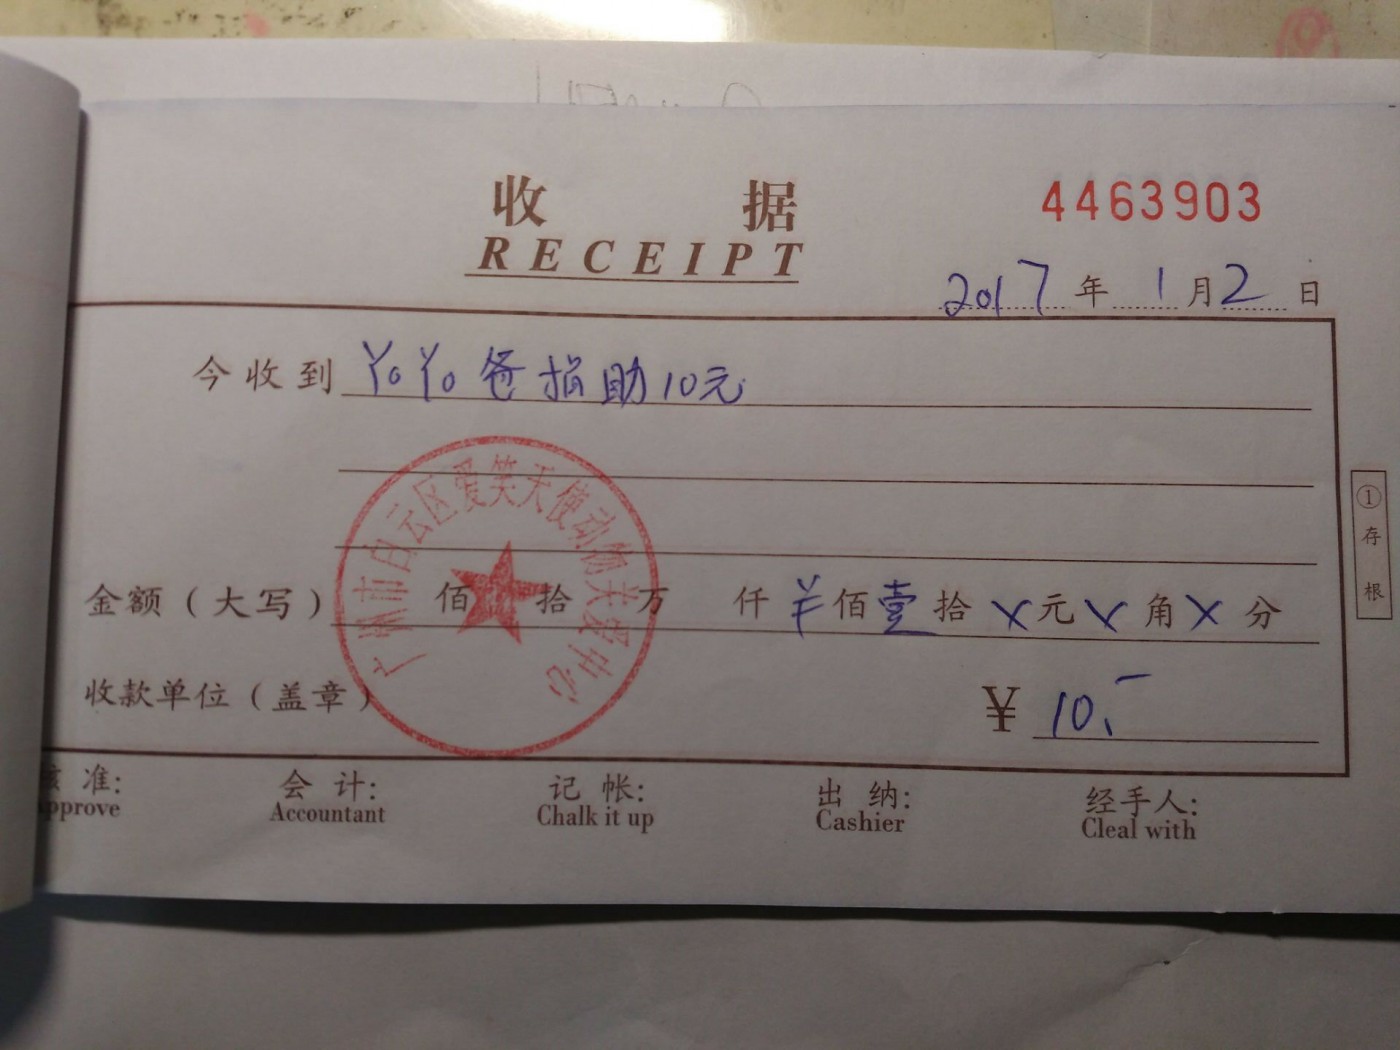 收 据
4463903
RECEIPT
2017 年 1 月 2 日
今收到 YoYo爸捐助10元
广州市白云区爱笑天使动物关爱中心
① 存根
金额（大写） 佰 拾 万 仟 ¥ 佰 壹 拾 X 元 X 角 X 分
收款单位（盖章） ¥ 10.-
准: 会 计: 记 帐: 出 纳: 经手人:
approve Accountant Chalk it up Cashier Cleal with